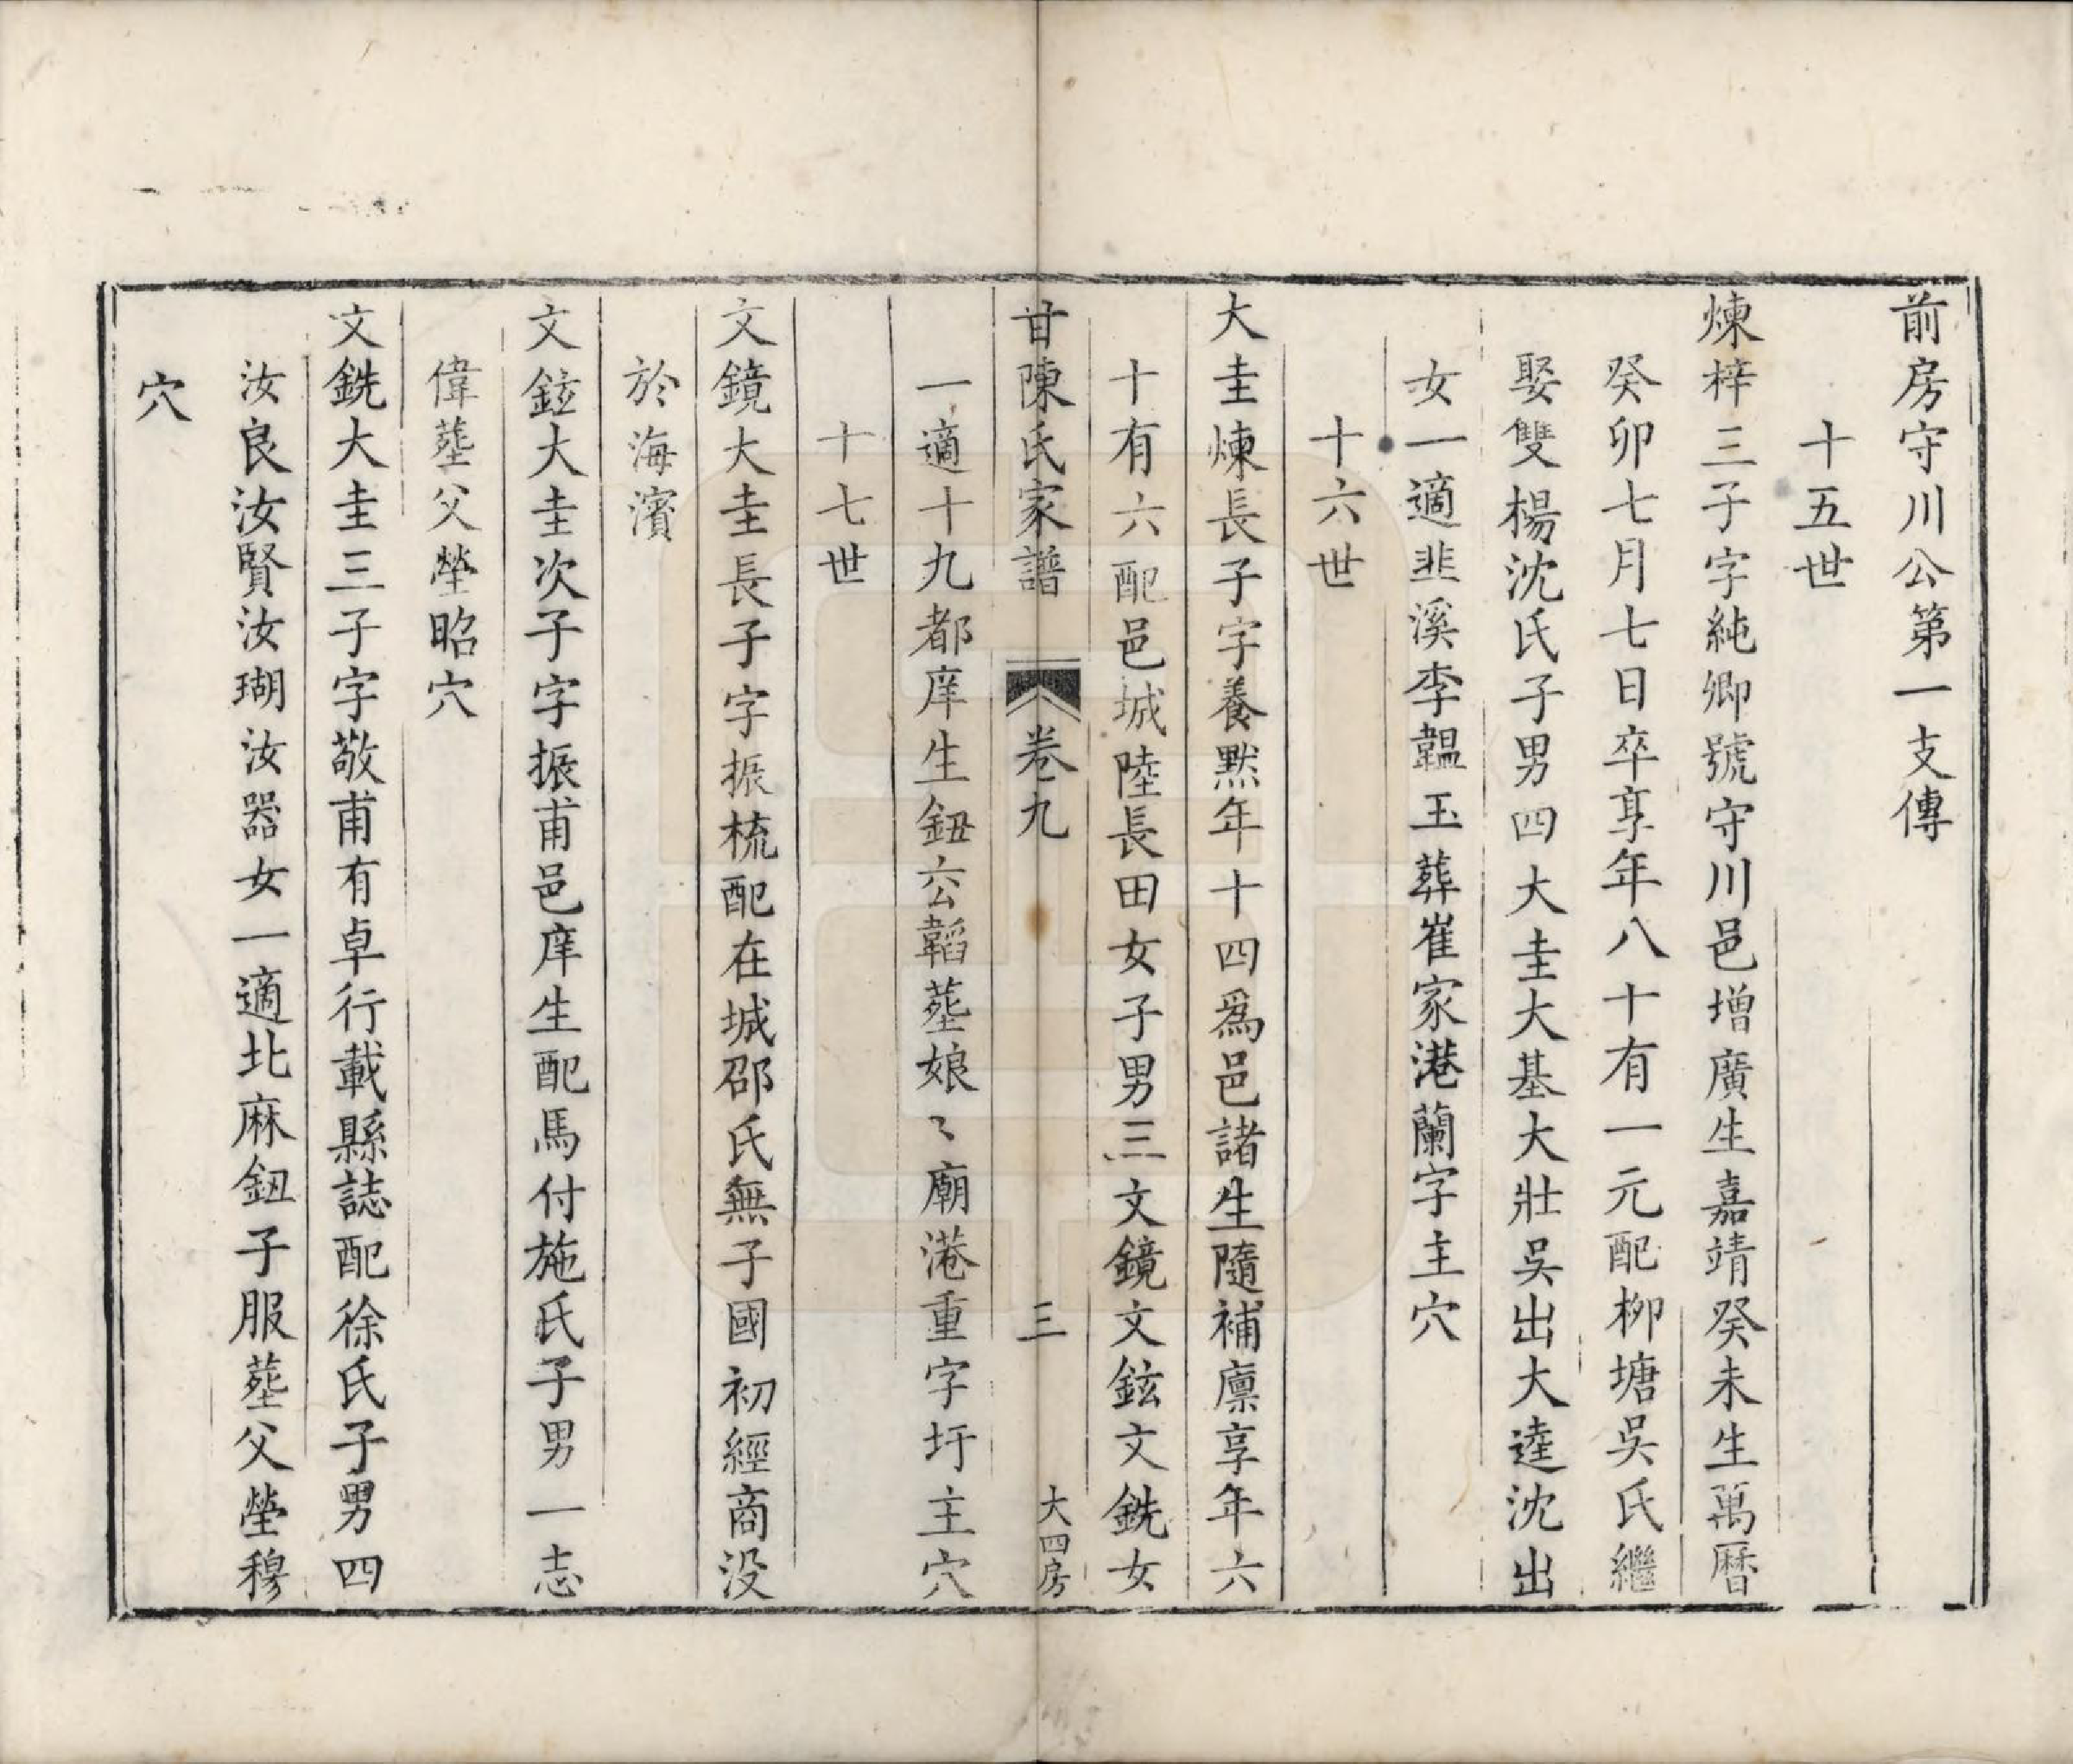 前房守川公第一支傳
十五世
煉梓三子字純卿號守川邑增廣生嘉靖癸未生萬曆
癸卯七月七日卒享年八十有一元配柳塘吳氏繼
娶雙楊沈氏子男四大圭大基大壯吳出大逵沈出
女一適韭溪李韞玉葬崔家港蘭字主穴
十六世
大圭煉長子字養默年十四爲邑諸生隨補廩享年六
十有六配邑城陸長田女子男三文鏡文鉉文銑女
甘陳氏家譜 卷九 三 大四房
一適十九都庠生鈕公韜塟娘〻廟港重字圩主穴
十七世
文鏡大圭長子字振梳配在城邵氏無子國初經商没
於海濱
文鉉大圭次子字振甫邑庠生配馬付施氏子男一志
偉塟父塋昭穴
文銑大圭三子字敬甫有卓行載縣誌配徐氏子男四
汝良汝賢汝瑚汝器女一適北麻鈕子服塟父塋穆
穴